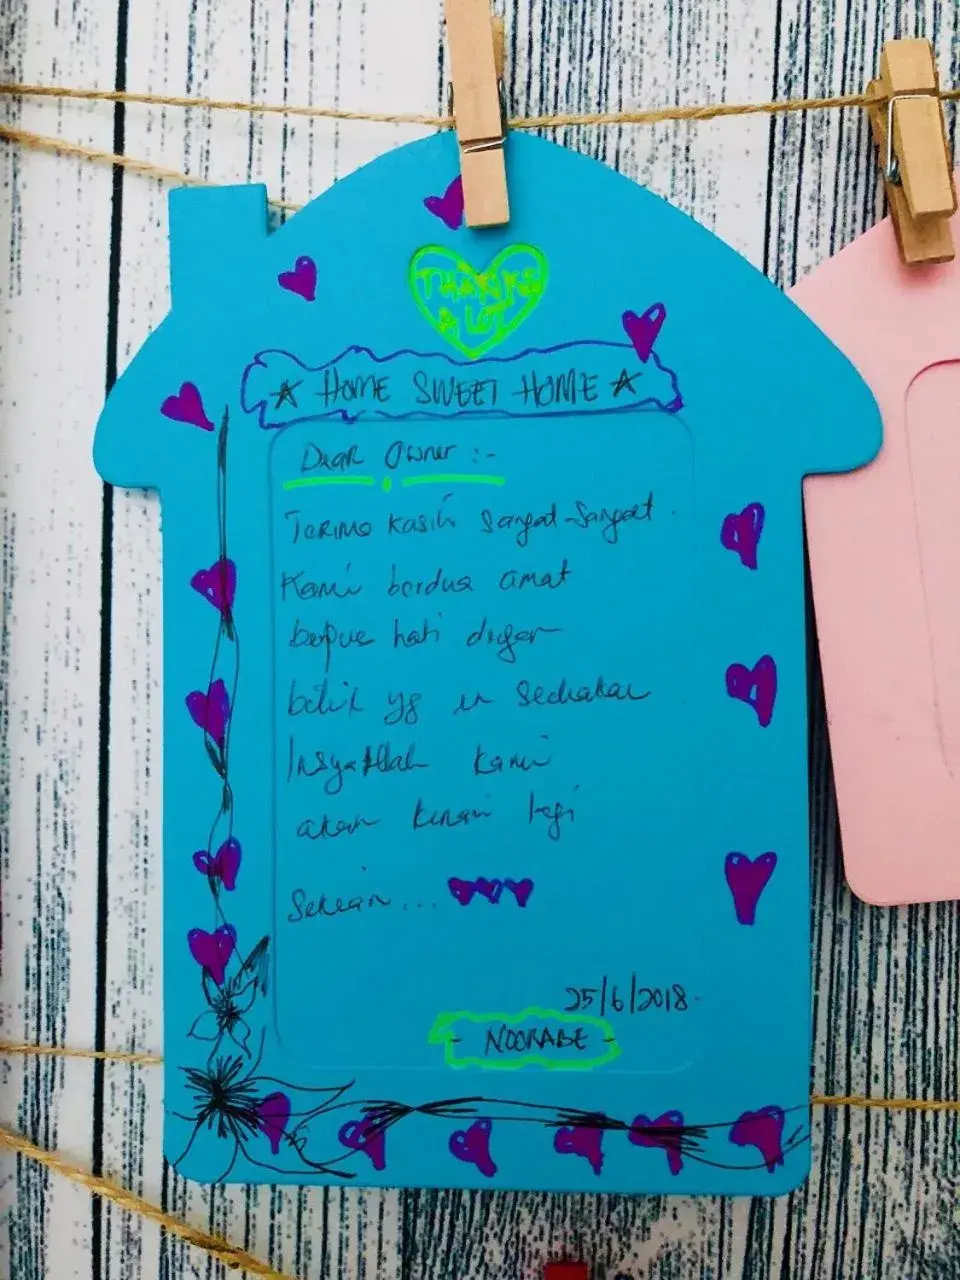 THANKS
A LOT
☆ HOME SWEET HOME ☆
Dear Owner :-
Terima Kasih Sangat-Sangat.
Kami berdua amat
berpuas hati dengan
bilik yg disediakan
InsyaAllah Kami
akan kemari lagi
Sekian...
25/6/2018.
- NOORABE -